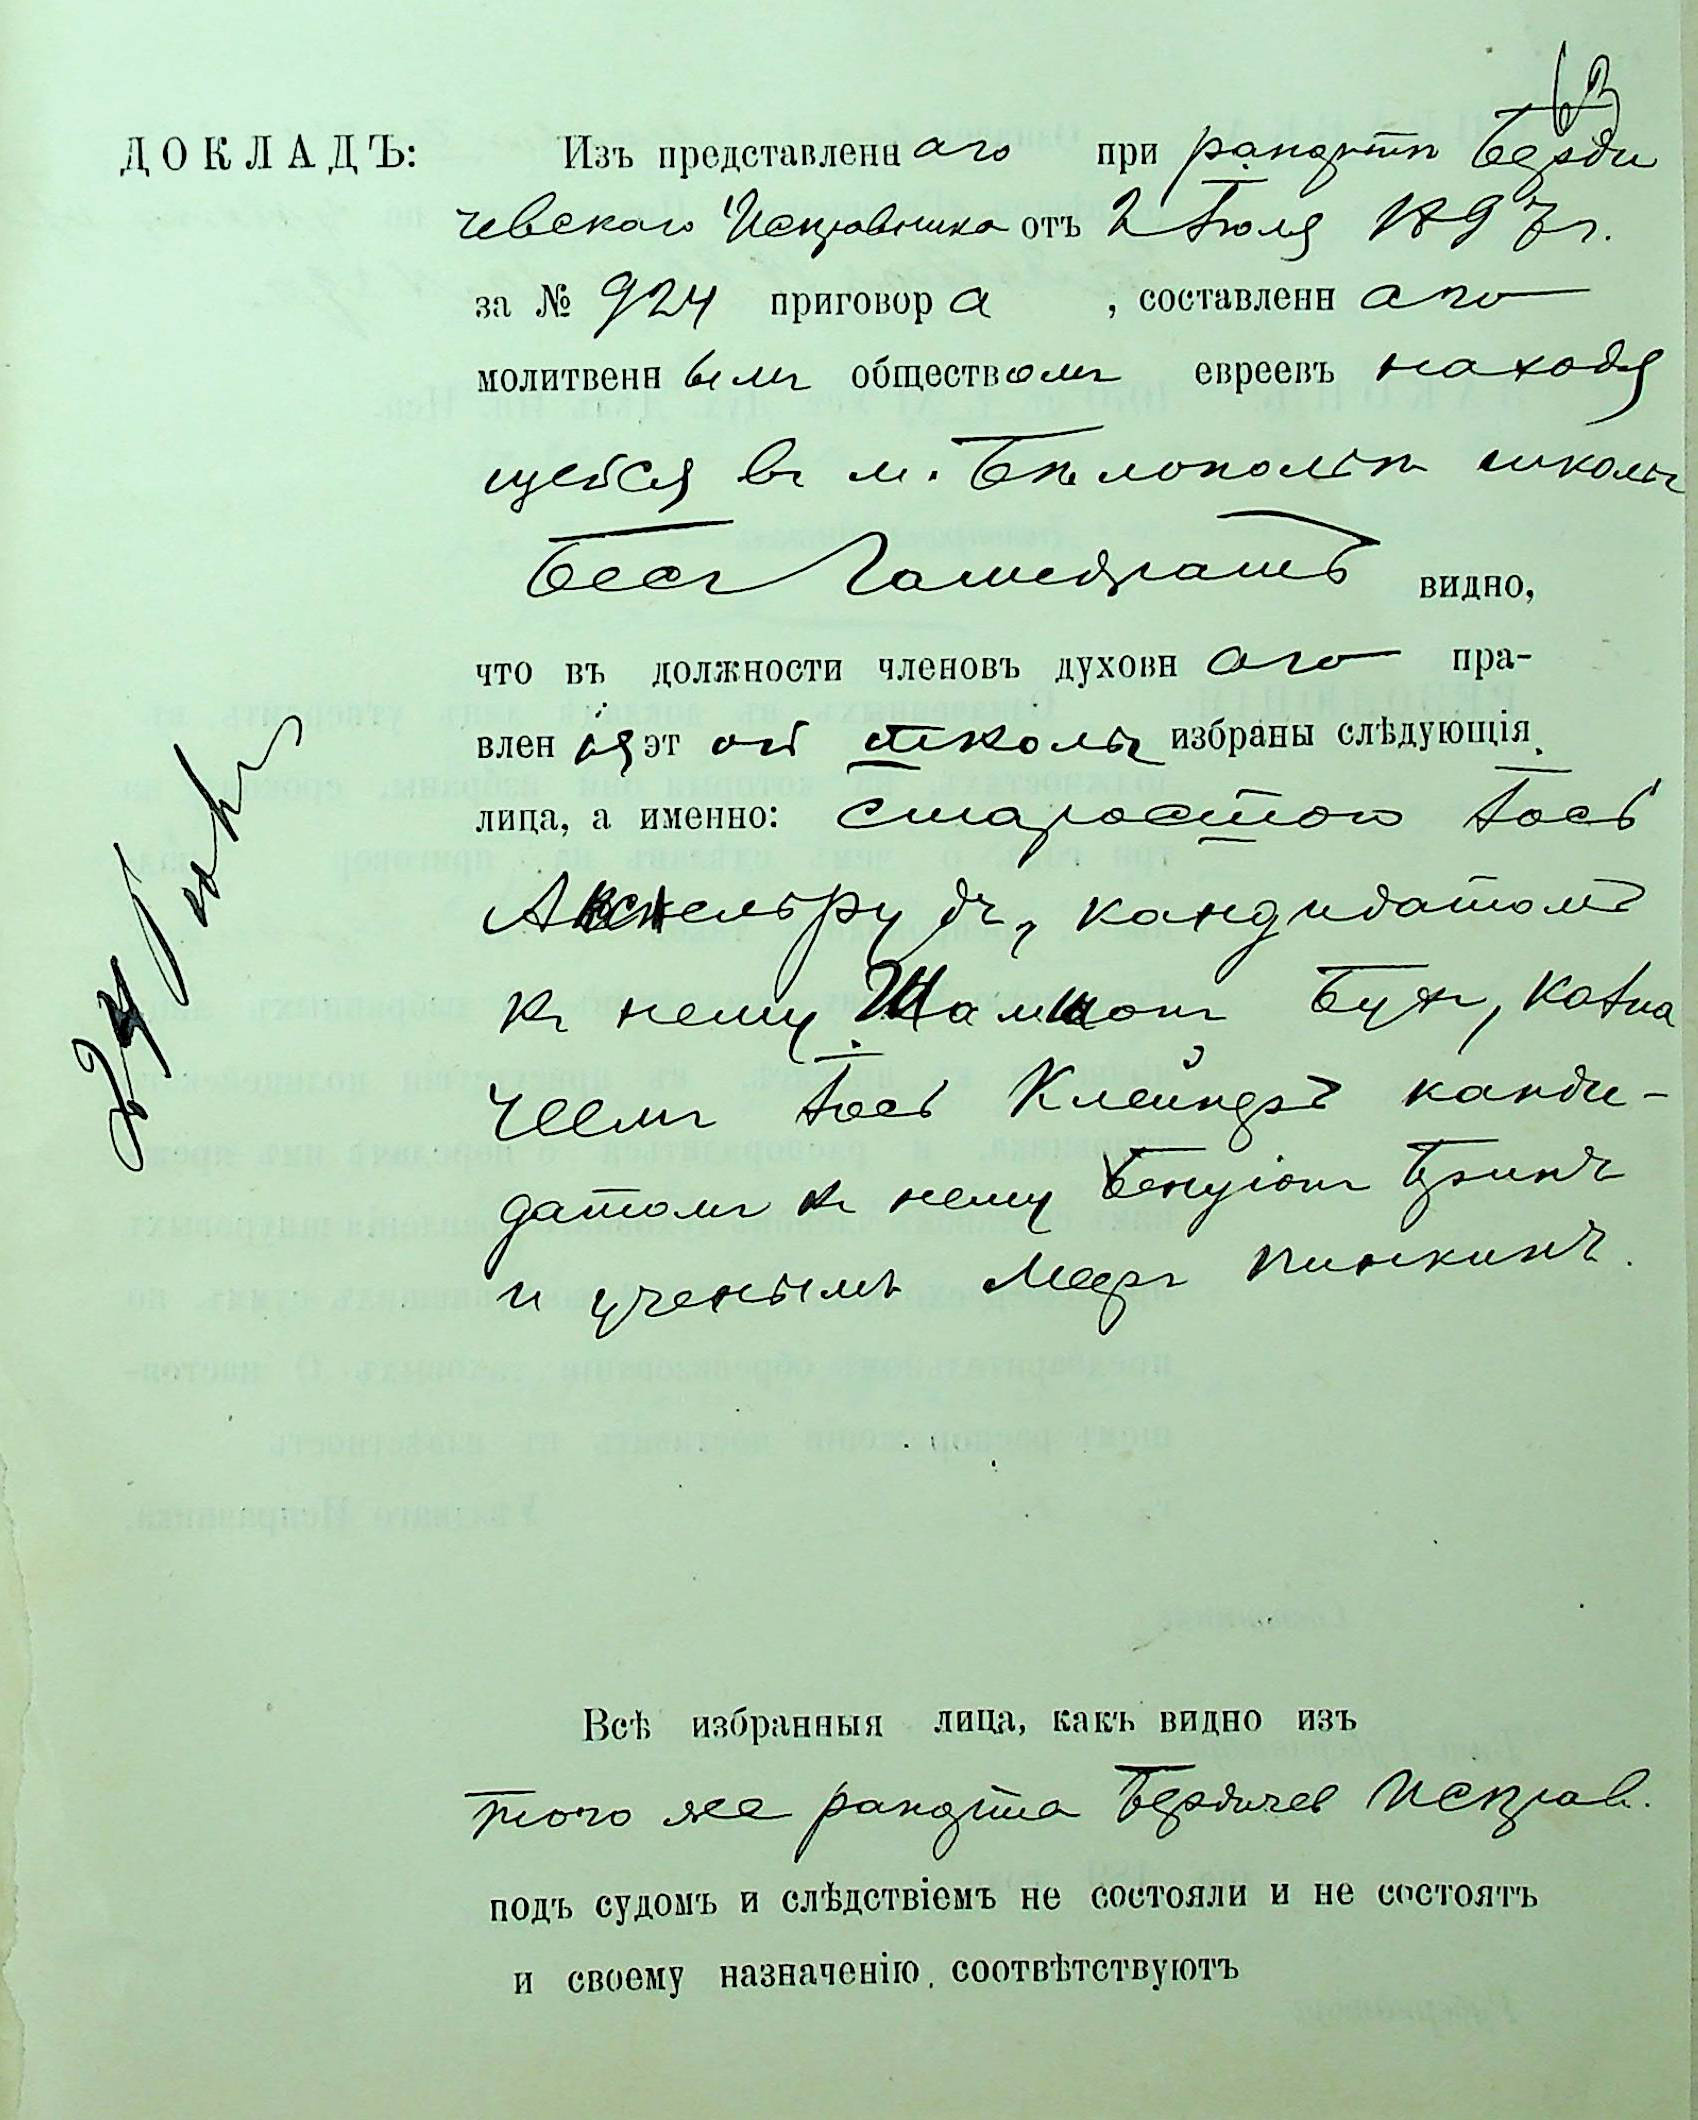 63
ДОКЛАДЪ: Изъ представленнаго при рапортѣ Берди
чевскаго Исправника отъ 2 Іюля 1897 г.
за № 924 приговора, составленнаго
молитвеннымъ обществомъ евреевъ находя
щейся въ м. Бѣлополѣ школы
Бесъ Гамедрашъ видно,
что въ должности членовъ духовнаго пра-
вленія этой школы избраны слѣдующія
лица, а именно: старостою Іось
Аксельрудъ, кандидатомъ
къ нему Шамшон Бук, казна
чеемъ Іось Клейнеръ канди-
датомъ къ нему Беніонъ Гринъ
и ученымъ Меер Пинкинъ.
Всѣ избранныя лица, какъ видно изъ
того же рапорта Бердичев Исправ.
подъ судомъ и слѣдствіемъ не состояли и не состоятъ
и своему назначенію соотвѣтствуютъ